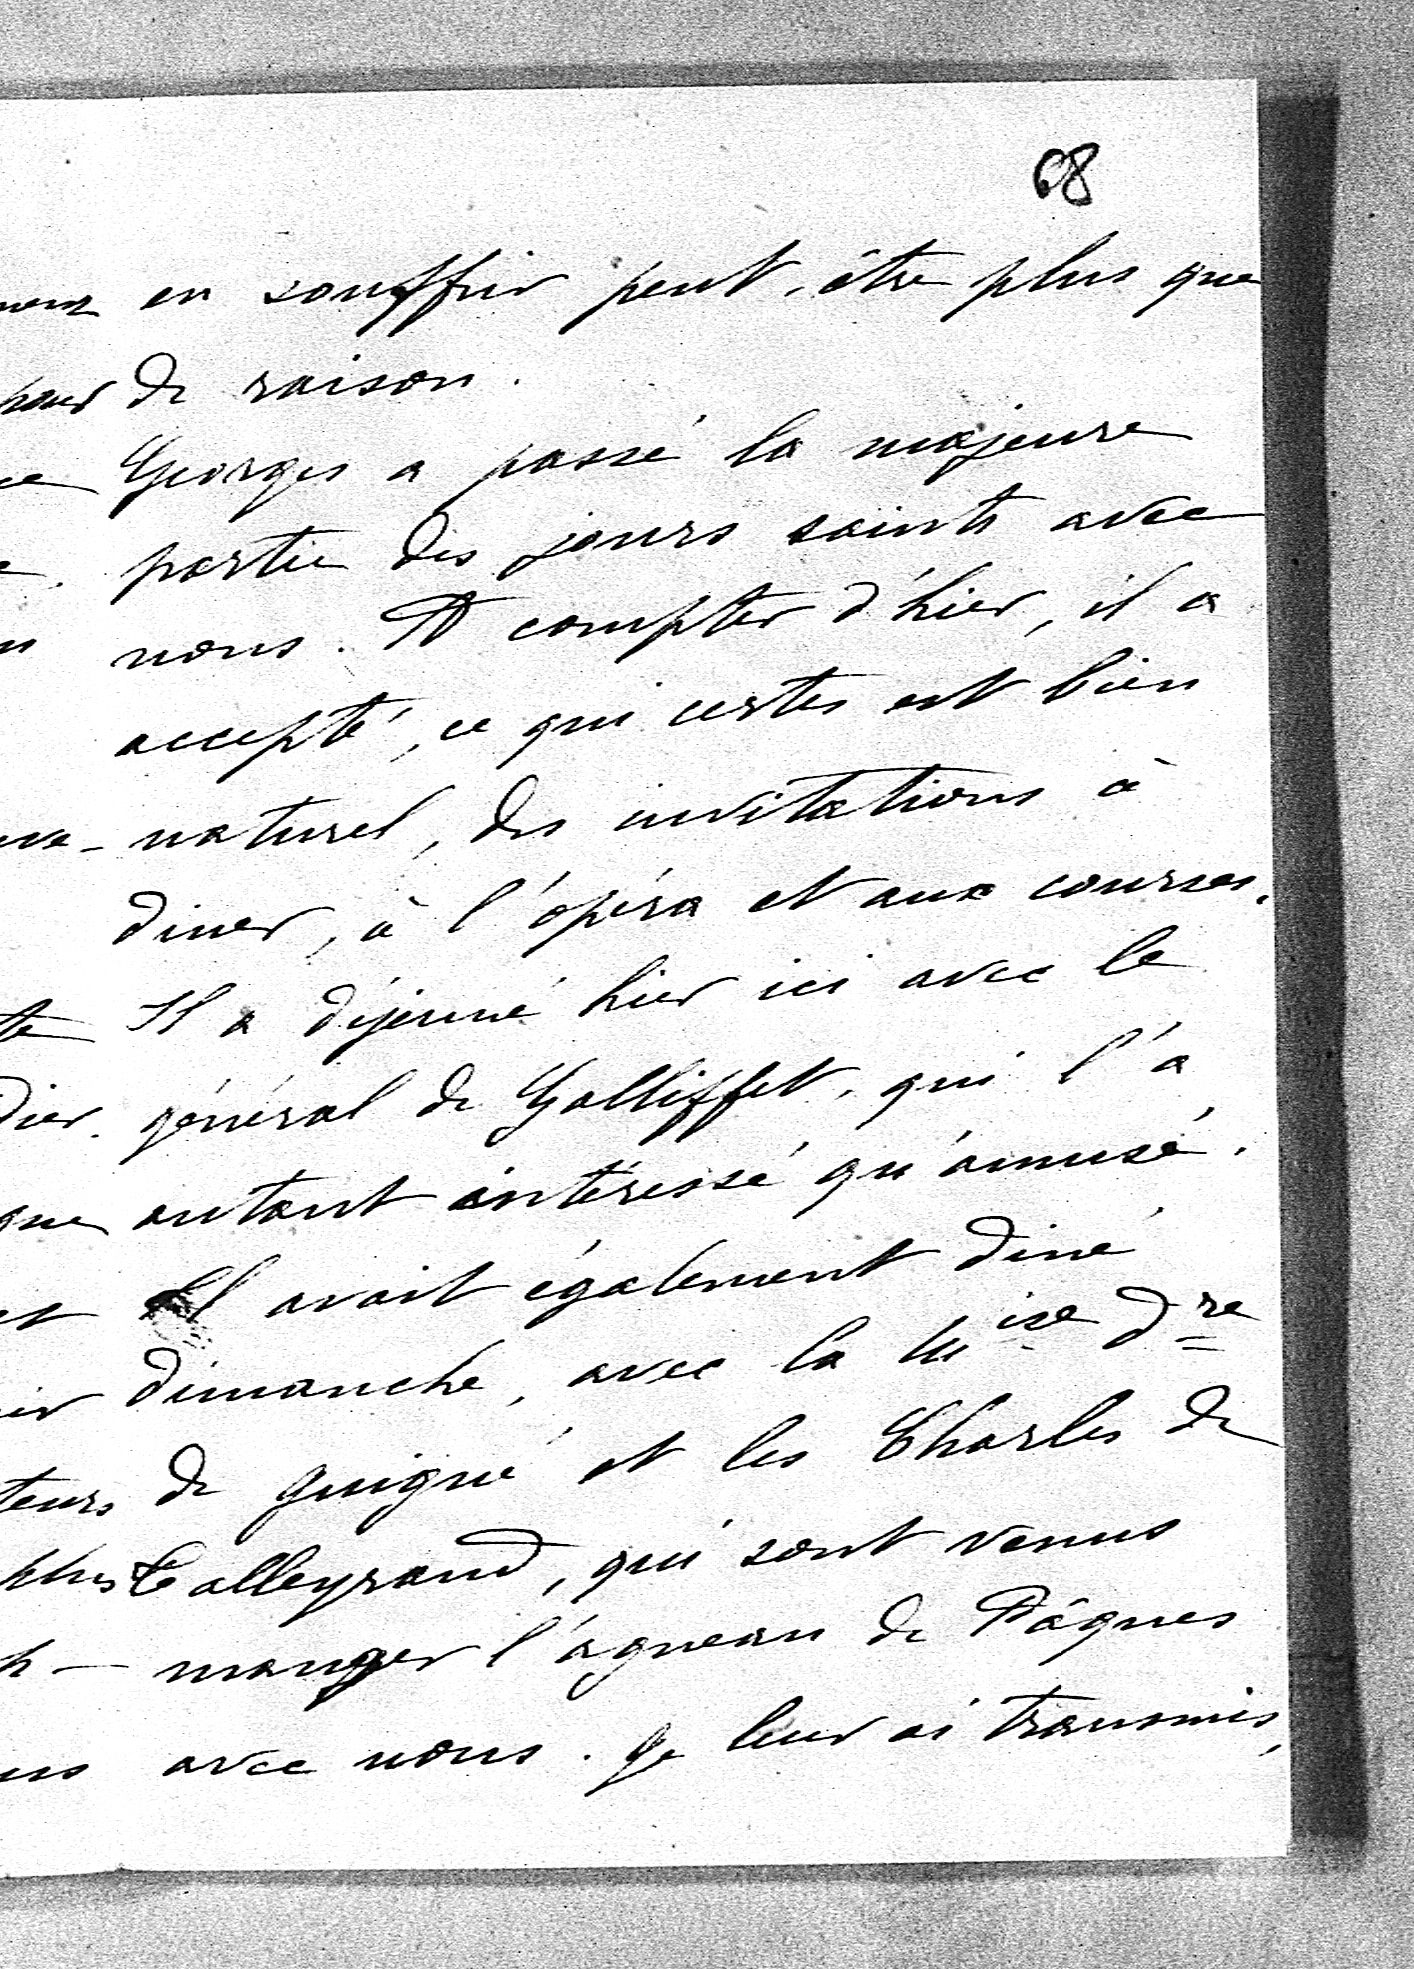 68
en souffrir peut-être plus que
de raison.
Georges a passé la majeure
partie des jours saints avec
nous. A compter d'hier, il a
accepté, ce qui certes est bien
naturel, des invitations à
diner, à l'opéra et aux courses.
Il a déjeuné hier ici avec le
général de Galliffet, qui l'a
autant intéressé qu'amusé.
Il avait également diné
dimanche, avec la Mise Dre
de Juigné et les Charles de
Talleyrand, qui sont venus
manger l'agneau de Pâques
avec nous. Je leur ai transmis,